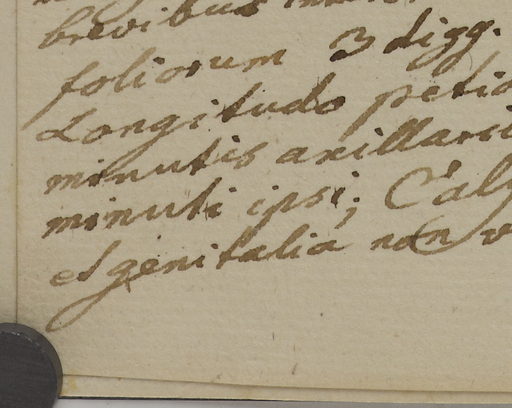 brevibus
foliorum 3 digg.
Longitudo petio
minutis axillari
minuti ipsi; Caly
et genitalia non v